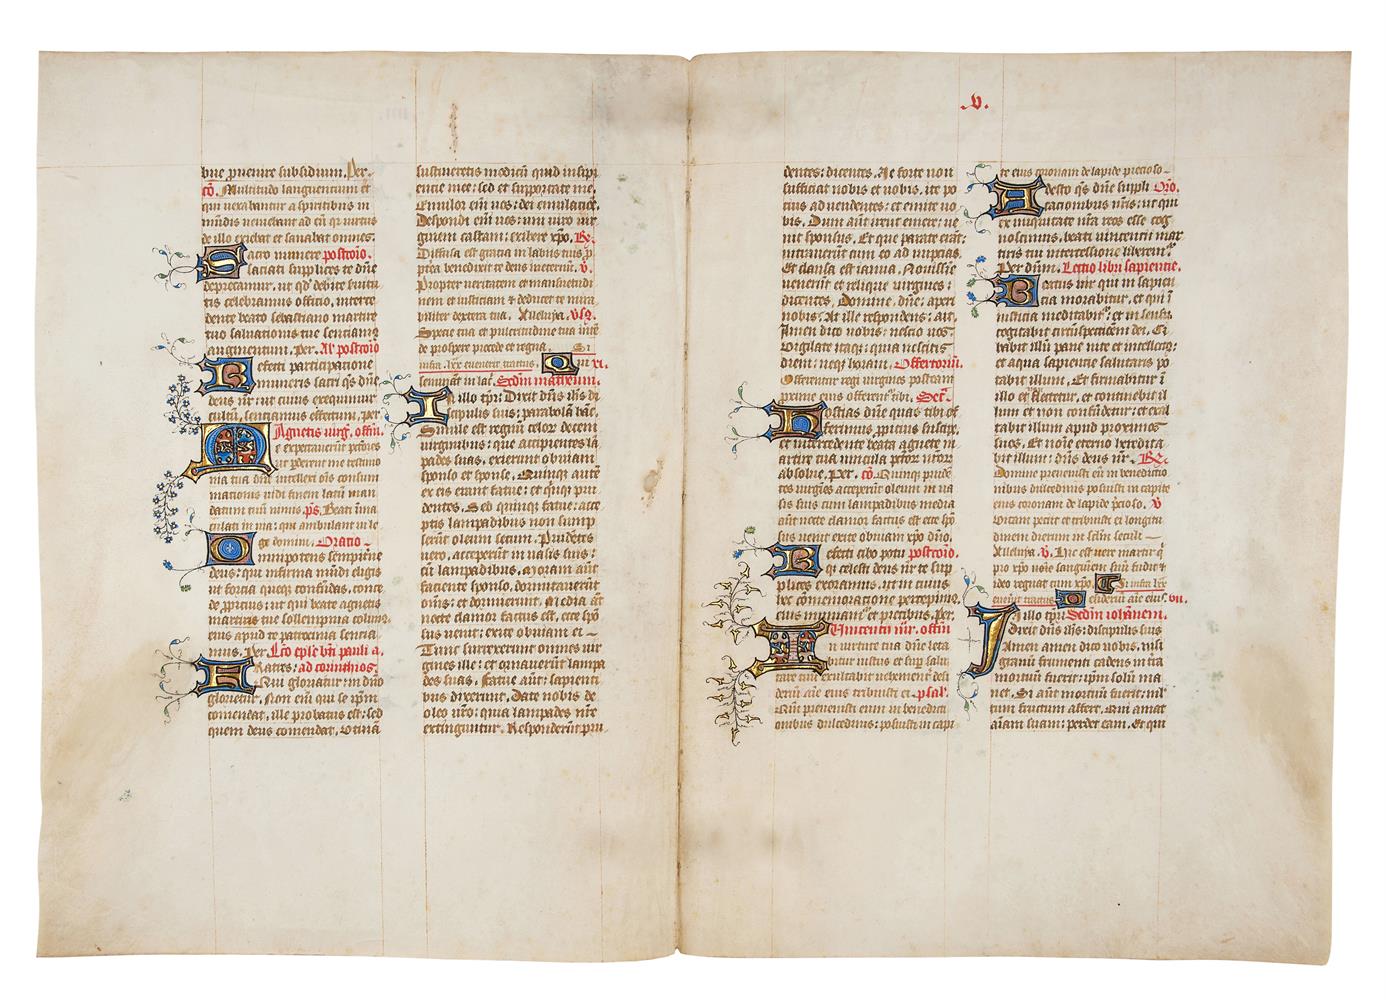 bne puenire subsidium. Per.
cō. Multitudo languentium et
qui vexabantur a spiritibus in
mūdis veniebant ad eū qr virtus
de illo exiebat et sanabat omnes.
Sacro munere postcōio.
saciati supplices te dn̄e
deprecamur. ut qd' debite servitu
tis celebramus officio, interce
dente beato sebastiano martire
tuo salvationis tue sentiamus
augmentum. Per. Al' postcōio
Refecti participatione
muneris sacri qs dn̄e
deus nr̄: ut cuius exequimur
cultū, sentiamus effectum, per
Agnetis virḡ. offm̄.
Me expectaverūt pctōres
ut pderent me testimo
nia tua dn̄e intellexi oīs consum
mationis vidi finem latum man
datum tuū nimis. ps. Beati īma
culati in via: qui ambulant in le
ge domini. Oratio.
Omnipotens sempiterne
deus: qui infirma mūdi eligis
ut fortia queqz confundas, conce
de ppicius: ut qui beate agnetis
martiris tue sollempnia colimus
eius apud te patrocinia sentia
mus. Per. Lc̄o eple bt̄i pauli a.
Fratres: ad corinthios.
Qui gloriatur: in dn̄o
glorietur. Non enī qui se ipm̄
comendat, ille probatus est: sed
quem deus comendat. Utinā
sustineretis modicū quid insipi
entie mee: sed et supportate me.
Emulor enī vos: dei emulatiōe.
Despondi enī vos: uni viro vir
ginem castam: exibere xp̄o. R̄.
Diffusa est gratia in labiis tuis p
pterea benedixit te deus ineternū. v.
Propter veritatem et mansuetudi
nem et iusticiam & deducet te mira
biliter dextera tua. Alleluya. v̄s.
Specie tua et pulcritudine tua inte
de prospere procede et regna. Si
infra lxx evenerit tractus. Qui xi.
seminant in lac̄. Scd̄m matheum.
In illo tp̄r: Dixit dn̄s ih̄s di
scipulis suis: parabolā hāc.
Simile est regnū celor decem
virginibus: que accipientes lā
pades suas, exierunt obviam
sponso et sponse. Quinque autē
ex eis erant fatue: et qinqz pru
dentes. Sed quinqz fatue: acce
ptis lampadibus non sump
serūt oleum secum. Prudētes
vero, acceperunt in vasis suis:
cū lampadibus. Moram aūt
faciente sponso, dormitaverūt
om̄s: et dormierunt. Media aūt
nocte clamor factus est, ecce spō
sus venit: exite obviam ei.
Tunc surrexerunt omnes vir
gines ille: et ornaverūt lampa
des suas. Fatue aūt: sapienti
bus dixerunt. Date nobis de
oleo vr̄o: quia lampades nr̄e
extinguntur. Responderūt pru
v.
dentes: dicentes. Ne forte non
sufficiat nobis et vobis, ite po
tius ad vendentes: et emite vo
bis. Dum aūt irent emere: ve
nit sponsus. Et que parate erāt:
intraverūt cum eo ad nuptias.
Et clausa est ianua. Novissie
venerūt et relique virgines:
dicentes. Domine, dn̄e: aperi
nobis. At ille respondens: ait.
Amen dico vobis: nescio vos.
Vigilate itaqz: quia nescitis
diem: neqz horam. Offertoriū.
Offerentur regi virgines posteam
proxime eius offerent' tibi. Sec̄.
Hostias dn̄e quas tibi of
ferimus ppitius suscipe.
et intercedente beata agnete m̄
artire tua vincula pctōr nr̄or
absolve. Per. cō. Quinqz prude
tes virgies acceperut oleum in va
sis suis cum lampadibus media
aūt nocte clamor factus est ecce spō
sus venit exite obviam xp̄o dn̄o.
Refecti cibo potu postcōio.
qz celesti deus nr̄ te sup
plices exoramus. ut in cuius
hec cōmemoratione percepimus
eius muniam' et precibus. Per.
Vincentii mr̄. offm̄
In virtute tua dn̄e leta
bitur iustus et sup salu
tare tuū exultabit vehement' desi
deriū aīe eius tribuisti ei. psal'.
Qm̄ prevenisti eum in benedicti
onibus dulcedinis: posuisti in capi
te eius coronam de lapide precioso.
Adesto qs dn̄e suppli Oro.
cationibus nr̄is: ut qui
ex iniquitate nr̄a reos esse cog
noscimus, beati vincentii mar
tiris tui intercessione liberem'.
Per dn̄m. Lectio libri sapientie.
Beatus vir qui in sapien
tia morabitur, et qui ī
iusticia meditabit': et in sensu
cogitabit circūspectionē dei. Ci
babit illū pane vite et intellectz:
et aqua sapientie salutaris po
tabit illum. Et firmabitur ī
illo et flectetur, et continebit il
lum et non cōfūdetur: et exal
tabit illum apud proximos
suos. Et noīe eterno heredita
bit illum: dn̄s deus nr̄. R̄.
Domine prevenisti eū in benedictio
nibus dulcedinis posuisti in capite
eius coronam de lapide p̄cioso. v̄
Vitam peciit et tribuisti ei longitu
dinem dierum in sclm̄ seculi.
Alleluya. v̄. Hic est vere martir q
pro xp̄o noīe sanguinem suū fudit &
ideo regnat cum xp̄o. Et si infra lxx
evenerit tractus Desideriū aīe eius. vii.
Scd̄m iohānem.
In illo tp̄r: Dixit dn̄s ih̄s: discipulis suis
Amen amen dico vobis, nisi
granū frumenti cadens in trā
mortuū fuerit: ipm̄ solū ma
net. Si aūt mortuū fuerit: ml'
tum fructum affert. Qui amat
aīam suam: perdet eam. Et qui